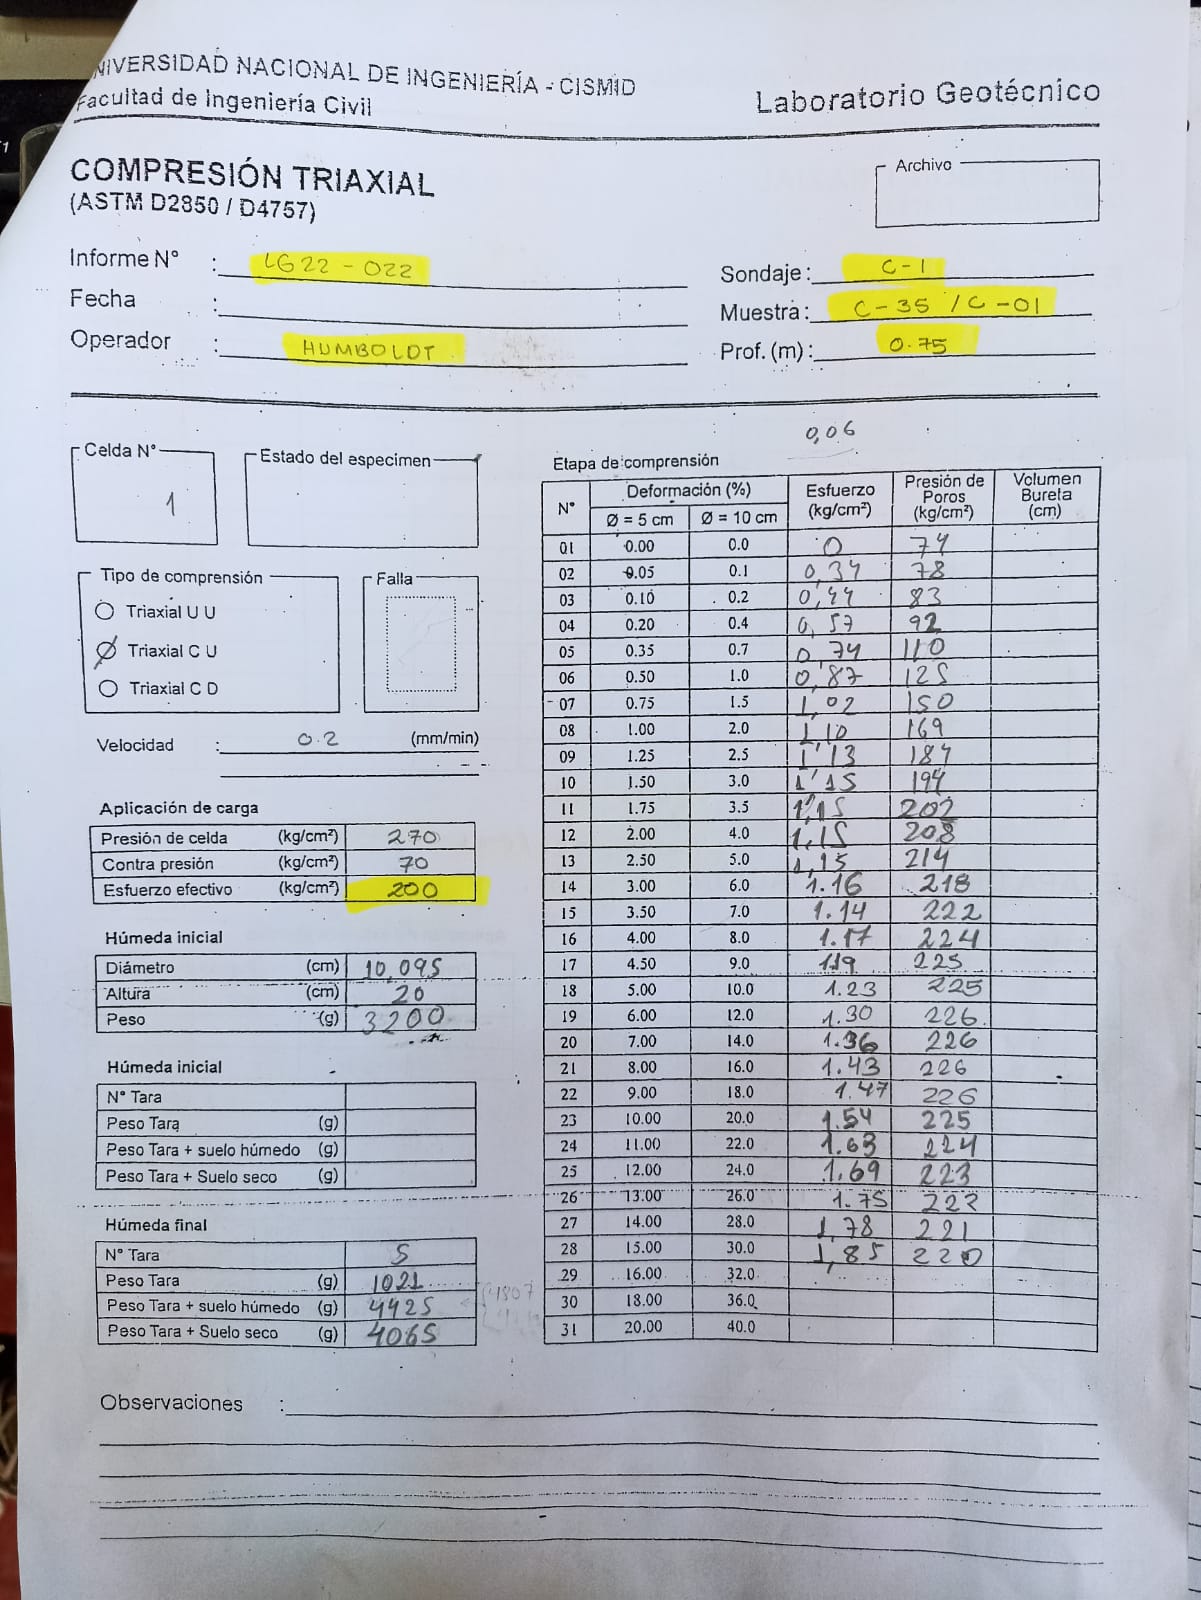 NIVERSIDAD NACIONAL DE INGENIERÍA - CISMID
Facultad de Ingeniería Civil
Laboratorio Geotécnico
COMPRESIÓN TRIAXIAL
(ASTM D2850 / D4757)
Archivo
Informe N° : LG22 - 022
Fecha :
Operador : HUMBOLDT
Sondaje : C-1
Muestra : C-35 / C-01
Prof. (m) : 0.75
Celda N°
1
Estado del especimen
Tipo de comprensión
Triaxial U U
Triaxial C U
Triaxial C D
Falla
Velocidad : 0.2 (mm/min)
Aplicación de carga
Presión de celda (kg/cm²) 270
Contra presión (kg/cm²) 70
Esfuerzo efectivo (kg/cm²) 200
Húmeda inicial
Diámetro (cm) 10,095
Altura (cm) 20
Peso (g) 3200
Húmeda inicial
N° Tara
Peso Tara (g)
Peso Tara + suelo húmedo (g)
Peso Tara + Suelo seco (g)
Húmeda final
N° Tara S
Peso Tara (g) 1021
Peso Tara + suelo húmedo (g) 4425
Peso Tara + Suelo seco (g) 4065
0,06
Etapa de comprensión
N° Deformación (%) Esfuerzo (kg/cm²) Presión de Poros (kg/cm²) Volumen Bureta (cm)
Ø = 5 cm Ø = 10 cm
01 0.00 0.0 0 74
02 0.05 0.1 0,34 78
03 0.10 0.2 0,44 83
04 0.20 0.4 0,57 92
05 0.35 0.7 0,74 110
06 0.50 1.0 0,87 125
07 0.75 1.5 1,02 150
08 1.00 2.0 1,10 169
09 1.25 2.5 1,13 184
10 1.50 3.0 1,15 194
11 1.75 3.5 1,15 202
12 2.00 4.0 1,15 208
13 2.50 5.0 1,15 214
14 3.00 6.0 1.16 218
15 3.50 7.0 1.14 222
16 4.00 8.0 1.17 224
17 4.50 9.0 1.19 225
18 5.00 10.0 1.23 225
19 6.00 12.0 1.30 226
20 7.00 14.0 1.36 226
21 8.00 16.0 1.43 226
22 9.00 18.0 1.47 226
23 10.00 20.0 1.54 225
24 11.00 22.0 1.63 224
25 12.00 24.0 1.69 223
26 13.00 26.0 1.75 222
27 14.00 28.0 1,78 221
28 15.00 30.0 1,85 220
29 16.00 32.0
30 18.00 36.0
31 20.00 40.0
Observaciones :